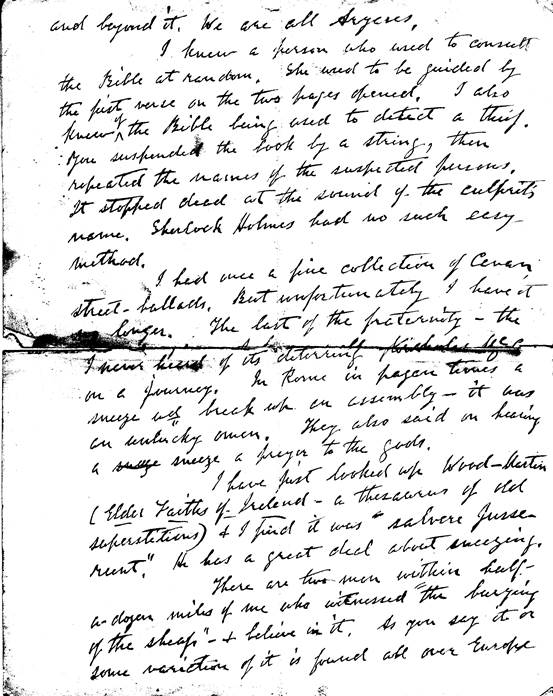 and beyond it. We are all Aryans.
I knew a person who used to consult
the Bible at random. She used to be guided by
the first verse on the two pages opened. I also
knew of the Bible being used to detect a thief.
You suspended the book by a string, then
repeated the names of the suspected persons.
It stopped dead at the sound of the culprit's
name. Sherlock Holmes had no such easy
method.
I had once a fine collection of Cavan
street-ballads. But unfortunately I have it
no longer. The last of the fraternity - the
I never heard of its deterring
on a journey. In Rome in pagan times a
sneeze wd break up an assembly - it was
an unlucky omen. They also said on hearing
a sneeze a prayer to the gods.
I have just looked up Wood-Martin
(Elder Faiths of Ireland - a thesaurus of old
superstitions) & I find it was "salvere jusse-
runt." He has a great deal about sneezing.
There are two men within half-
a-dozen miles of me who witnessed "the burying
of the sheaf" - & believe in it. As you say it or
some variation of it is found all over Europe